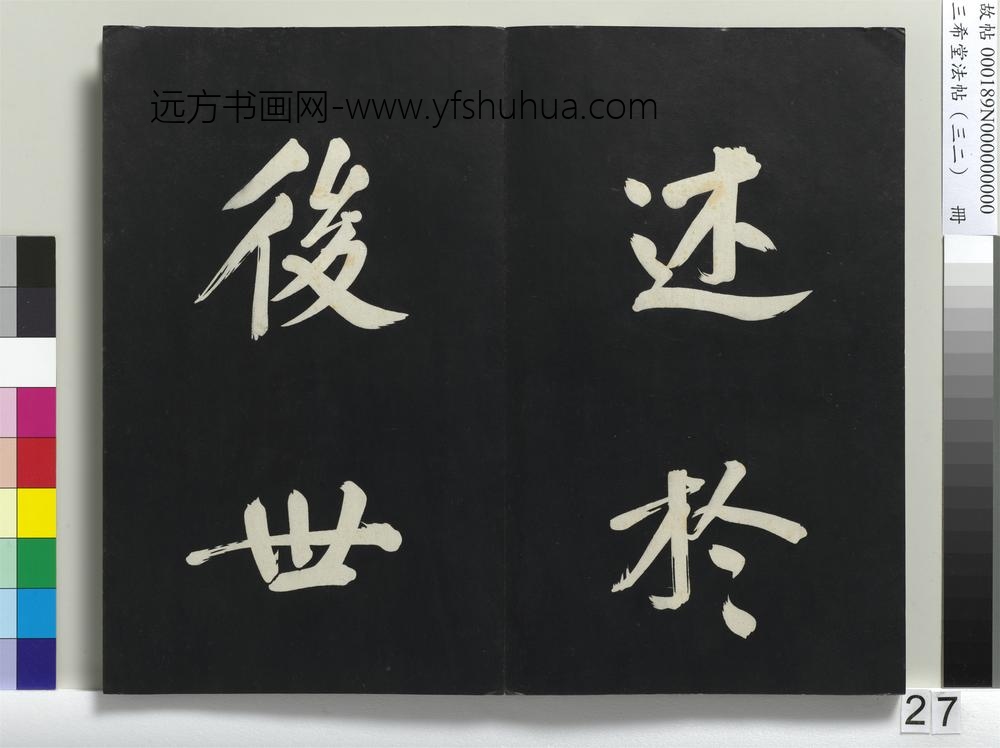 述於
後世
远方书画网-www.yfshuhua.com
故帖 000189N000000000
三希堂法帖（三二） 冊
27